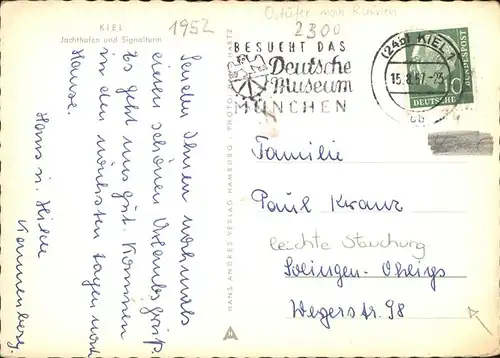 KIEL
Jachthafen und Signalturm
1952
Ostufer nach Ruinen
2300
BESUCHT DAS
Deutsche
Museum
MÜNCHEN
(24b) KIEL 1
15.8.57-23
10
DEUTSCHE
BUNDESPOST
Senden Ihnen nochmals
einen schönen Urlaubsgruß.
Es geht uns gut. Kommen
in den nächsten Tagen nach
Hause.
Hans u. Hilde
Kannenberg
HANS ANDRES VERLAG HAMBURG · PHOTO: HANS HARTZ
Familie
Paul Kranz
leichte Stauchung
Solingen-Ohligs
Wegerstr. 98